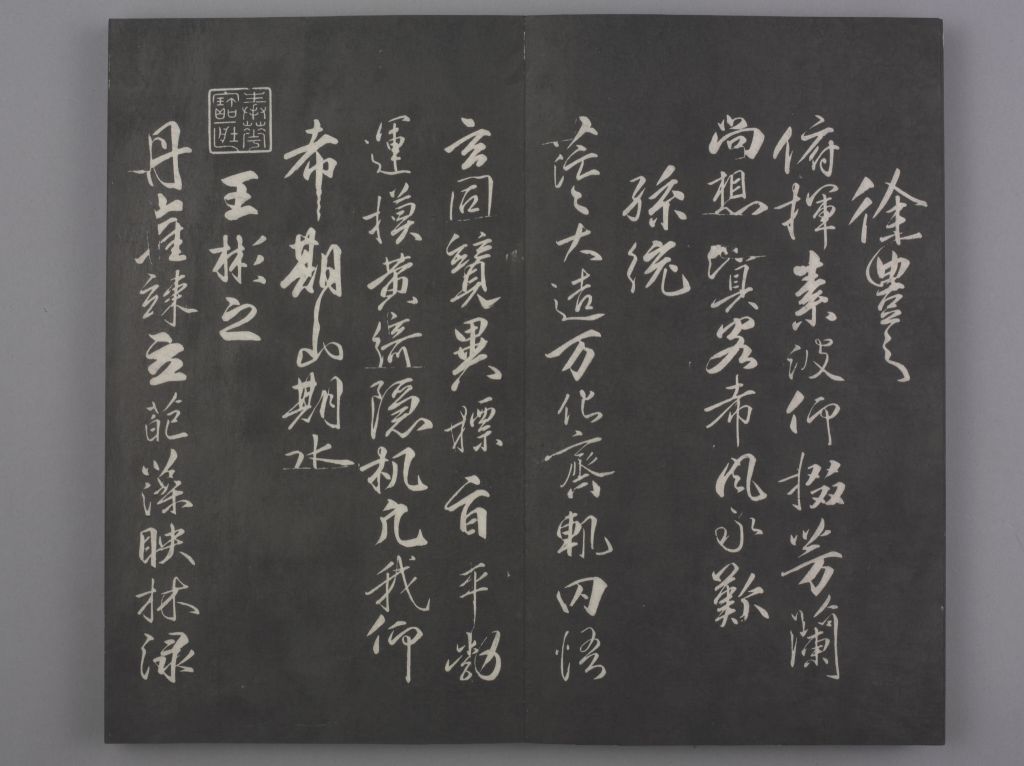 徐豊之
俯揮素波仰掇芳蘭
尚想嘉客希風永歎
孫統
茫〻大造万化齊軌罔悟
玄同競異摽旨平勃
運摸黄綺隠机凡我仰
希期山期水
王彬之
丹崖竦立葩藻映林渌